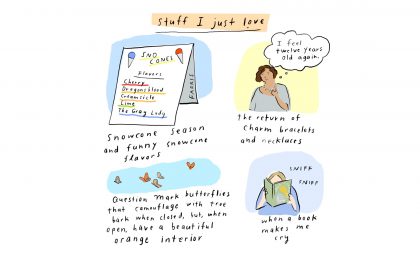 Stuff I just love
SNO
CONES
Flavors
Cherry
Dragonsblood
Creamsicle
Lime
The Gray Lady
Snowcone season
and funny snowcone
flavors
I feel
twelve years
old again.
the return of
charm bracelets
and necklaces
Question mark butterflies
that camouflage with tree
bark when closed, but, when
open, have a beautiful
orange interior
SNIFF
SNIFF
when a book
makes me
cry